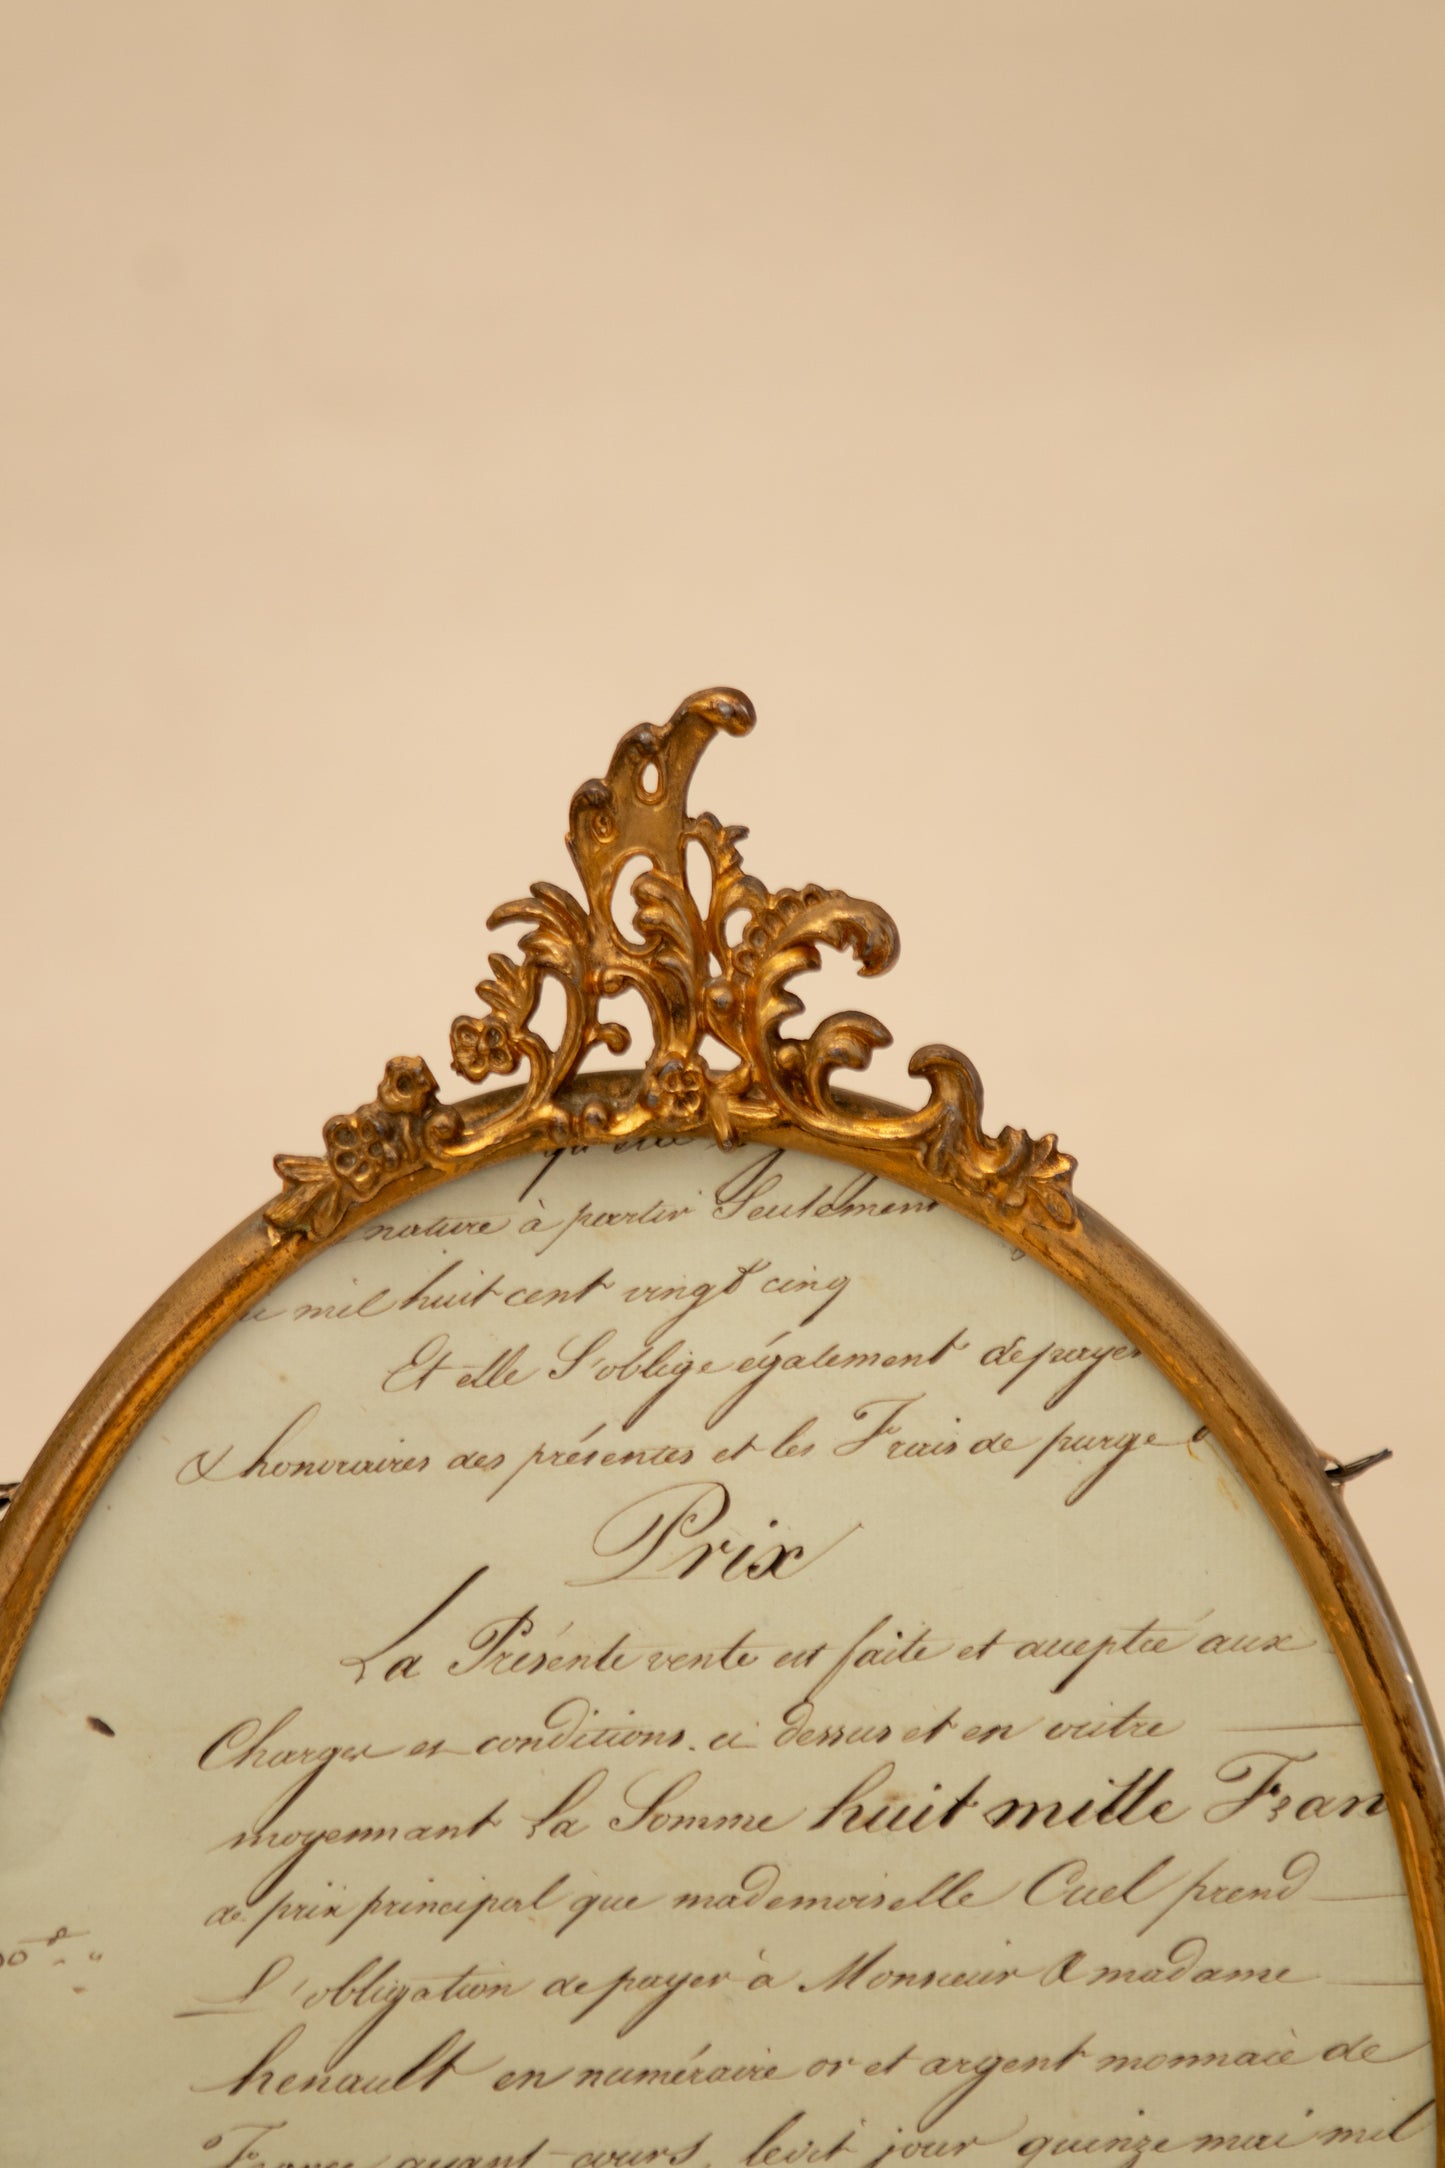 qu'elle
nature à partir Seulement
mil huit cent vingt cinq
Et elle S'oblige également de payer
& honoraires des présentes et les Frais de purge
Prix
La Présente vente est faite et acceptée aux
Charges et conditions ci dessus et en outre
moyennant La Somme huit mille Fran
de prix principal que mademoiselle Cuel prend
L'obligation de payer à Monsieur & madame
henault en numéraire or et argent monnaie de
France ayant cours, ledit jour quinze mai mil